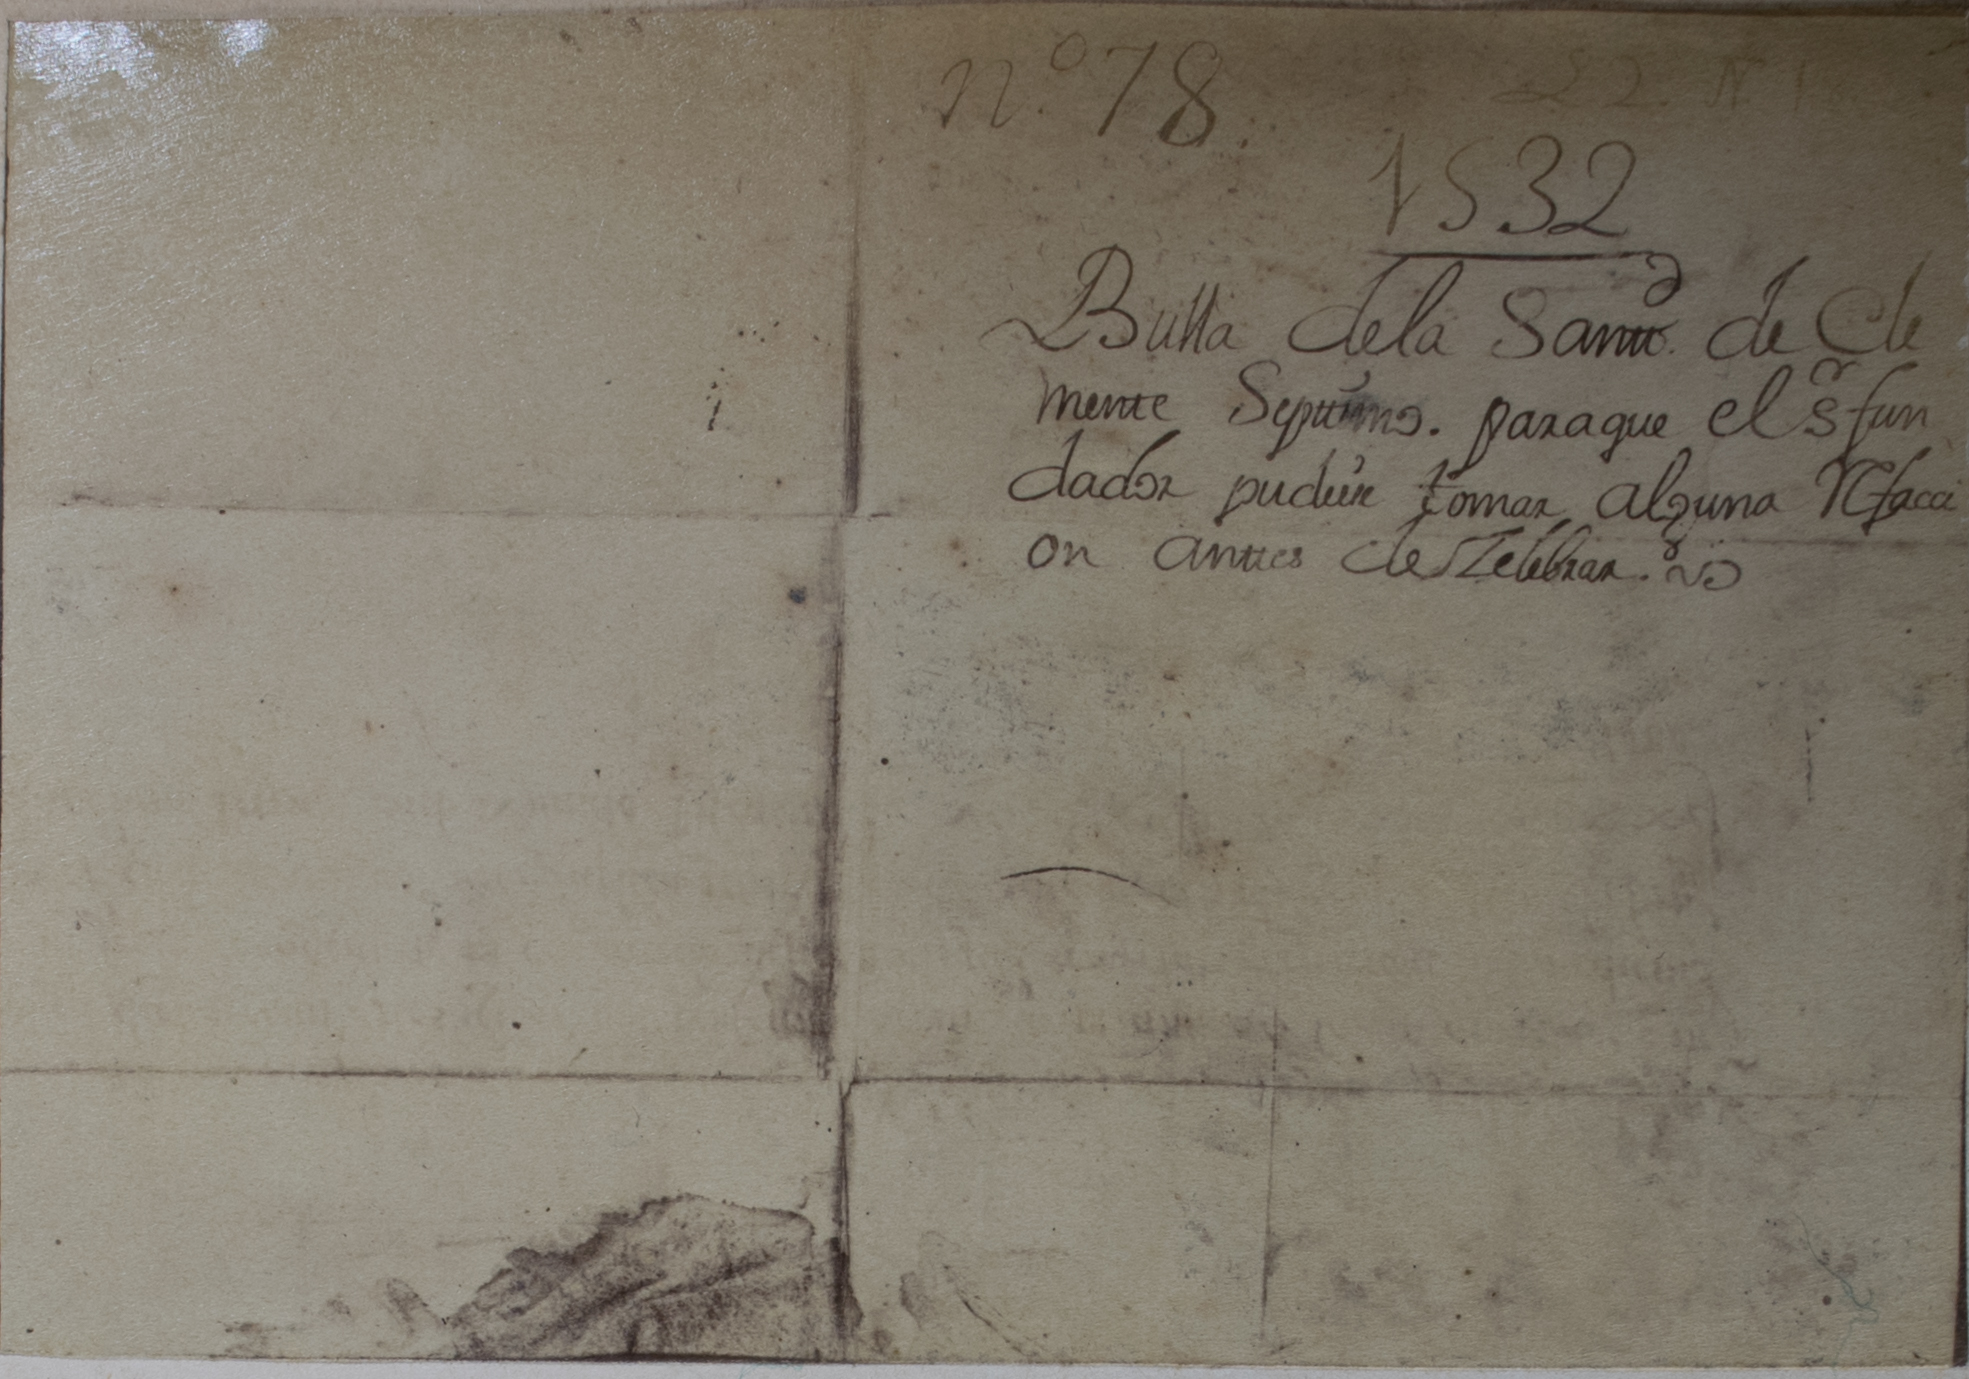 nº 78.
1532
Bulla dela Santtd. de Cle
mente Septtimo. paraque el Sr fun
dador pudiese tomar alguna Refacci
on anttes de Zelebrar.